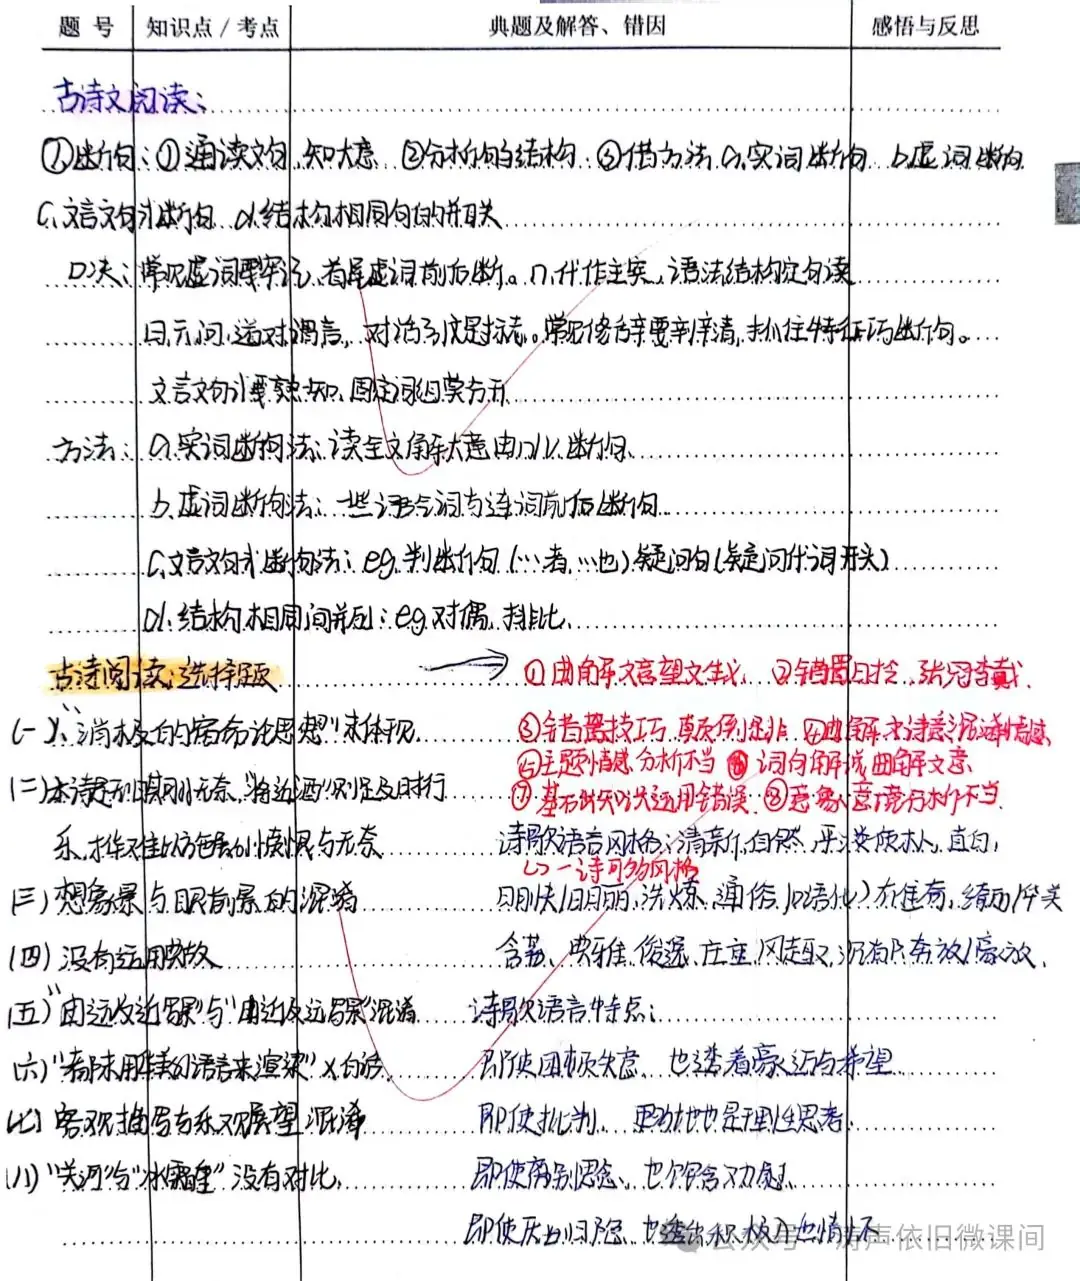 题 号 知识点/考点 典题及解答、错因 感悟与反思
古诗文阅读:
①断句:①通读文句,知大意 ②分析句的结构 ③借方法 a,实词断句 b.虚词断句
c,文言文句式断句 d.结构相同句的并列关
口决:常见虚词要牢记,首尾虚词前后断。n.代作主宾,语法结构定句读
曰云问道对谓言,对话引文是标志。常见修辞要弄清,抓住特征巧断句。
文言文句式要熟知,固定词组莫分开
方法:a.实词断句法:读全文解大意由 断句
b.虚词断句法:一些语气词与连词前后断句
c,文言文句式断句法:eg.判断句(…者,…也)疑问句(疑问代词开头)
d.结构相同间并列:eg对偶,排比,
古诗阅读:选择题 → ①曲解文言望文生义, ②错置 ,张冠李戴.
(一)、"消极的宿命论思想"未体现. ③错置技巧,颠倒是非 ④曲解古诗意混淆情感
⑤主题情感分析不当 ⑥词句解说,曲解文意
(二)本诗 无奈,"将近酒"则是及时行 ⑦基础知识运用错误.⑧意象、意境分析不当.
乐, 与无奈 诗歌语言风格:清新,自然,平淡 ,直白,
↳一诗可多风格
(三)想象景与眼前景的混淆 明快/明丽,洗炼,通俗(口语化)
(四)没有运用典故 含蓄、典雅、俊逸、庄重,风趣,沉着,奔放/豪放,
(五)"由远及近景"与"由近及远景"混淆 诗歌语言特点:
(六)"未用华丽语言来渲染"×白话, 即使困顿失意,也透着豪迈与希望
(七)客观描写与乐观展望混淆 即使批判, 也是理性思考,
(八)"关河"与"冰霜重"没有对比, 即使离别思念,也饱含 感,
即使 归隐,也透出积极 情怀
公众号·涛声依旧微课间